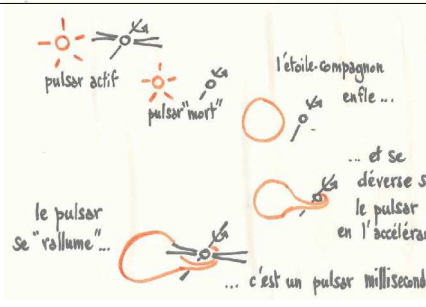 pulsar actif
pulsar "mort"
l'étoile-compagnon
enfle ...
... et se
déverse s
le pulsar
en l'accéléra
le pulsar
se "rallume"...
... c'est un pulsar milliseconde